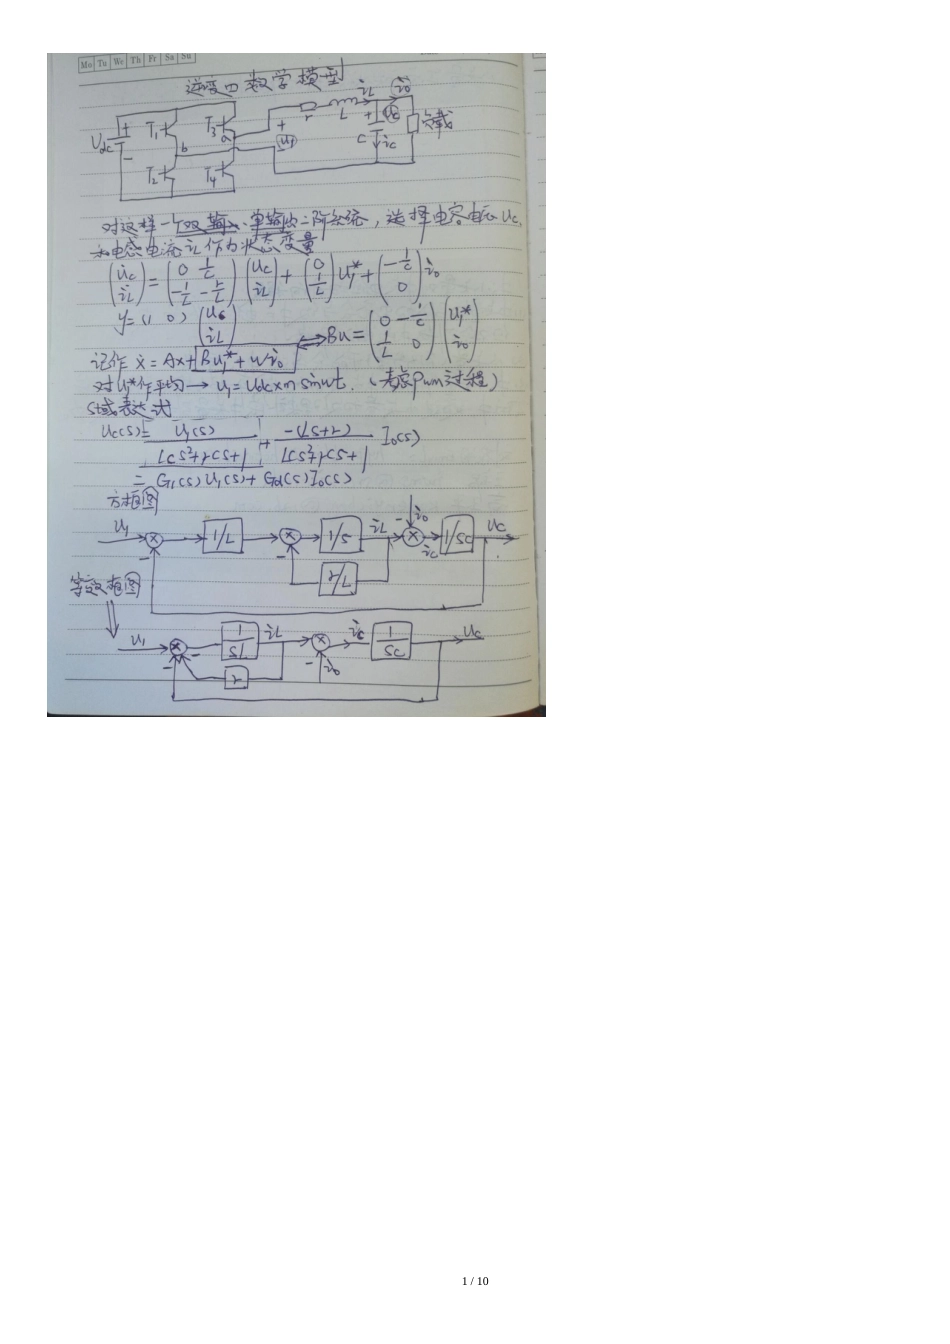 Mo Tu We Th Fr Sa Su
逆变器数学模型
Vdc + − T1 T2 T3 T4 a b + u1 − r L iL i0 + uc − C ic 负载
对这样一个双输入、单输出二阶系统，选择电容电压 uc,
和电感电流 iL 作为状态变量
(u̇c i̇L) = (0 1/C −1/L −r/L)(uc iL) + (0 1/L) u1* + (−1/C 0) i0
y = (1 0)(uc iL) ⟺ Bu = (0 −1/C 1/L 0)(u1* i0)
记作 ẋ = Ax + Bu1* + wi0
对 u1* 作平均 → u1 = Udc×m sinwt. (考虑Pwm过程)
S域表达式
Uc(s) = U1(s)/(LCs²+rCs+1) + −(Ls+r)/(LCs²+rCs+1) I0(s)
= G1(s)U1(s) + Gd(s)I0(s)
方框图
u1 − 1/L − 1/s r/L iL − i0 ic 1/sC uc
等效框图
u1 − − 1/sL r iL − i0 ic 1/sC uc
1 / 10